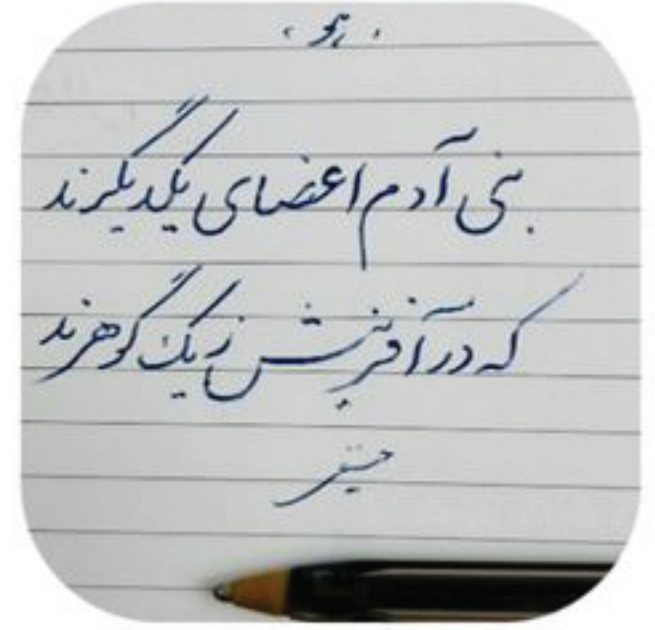 هو
بنی آدم اعضای یکدیگرند
که در آفرینش ز یک گوهرند